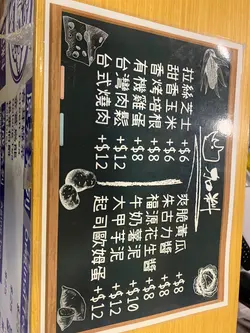 加料
拉絲芝士 +$6
甜香玉米 +$6
香烤培根 +$8
有機雞蛋 +$8
台灣肉鬆 +$12
台式燒肉 +$12
爽脆黃瓜 +$8
朱古力醬 +$8
福源花生醬 +$8
牛奶薯泥 +$10
大甲芋泥 +$12
起司歐姆蛋 +$12